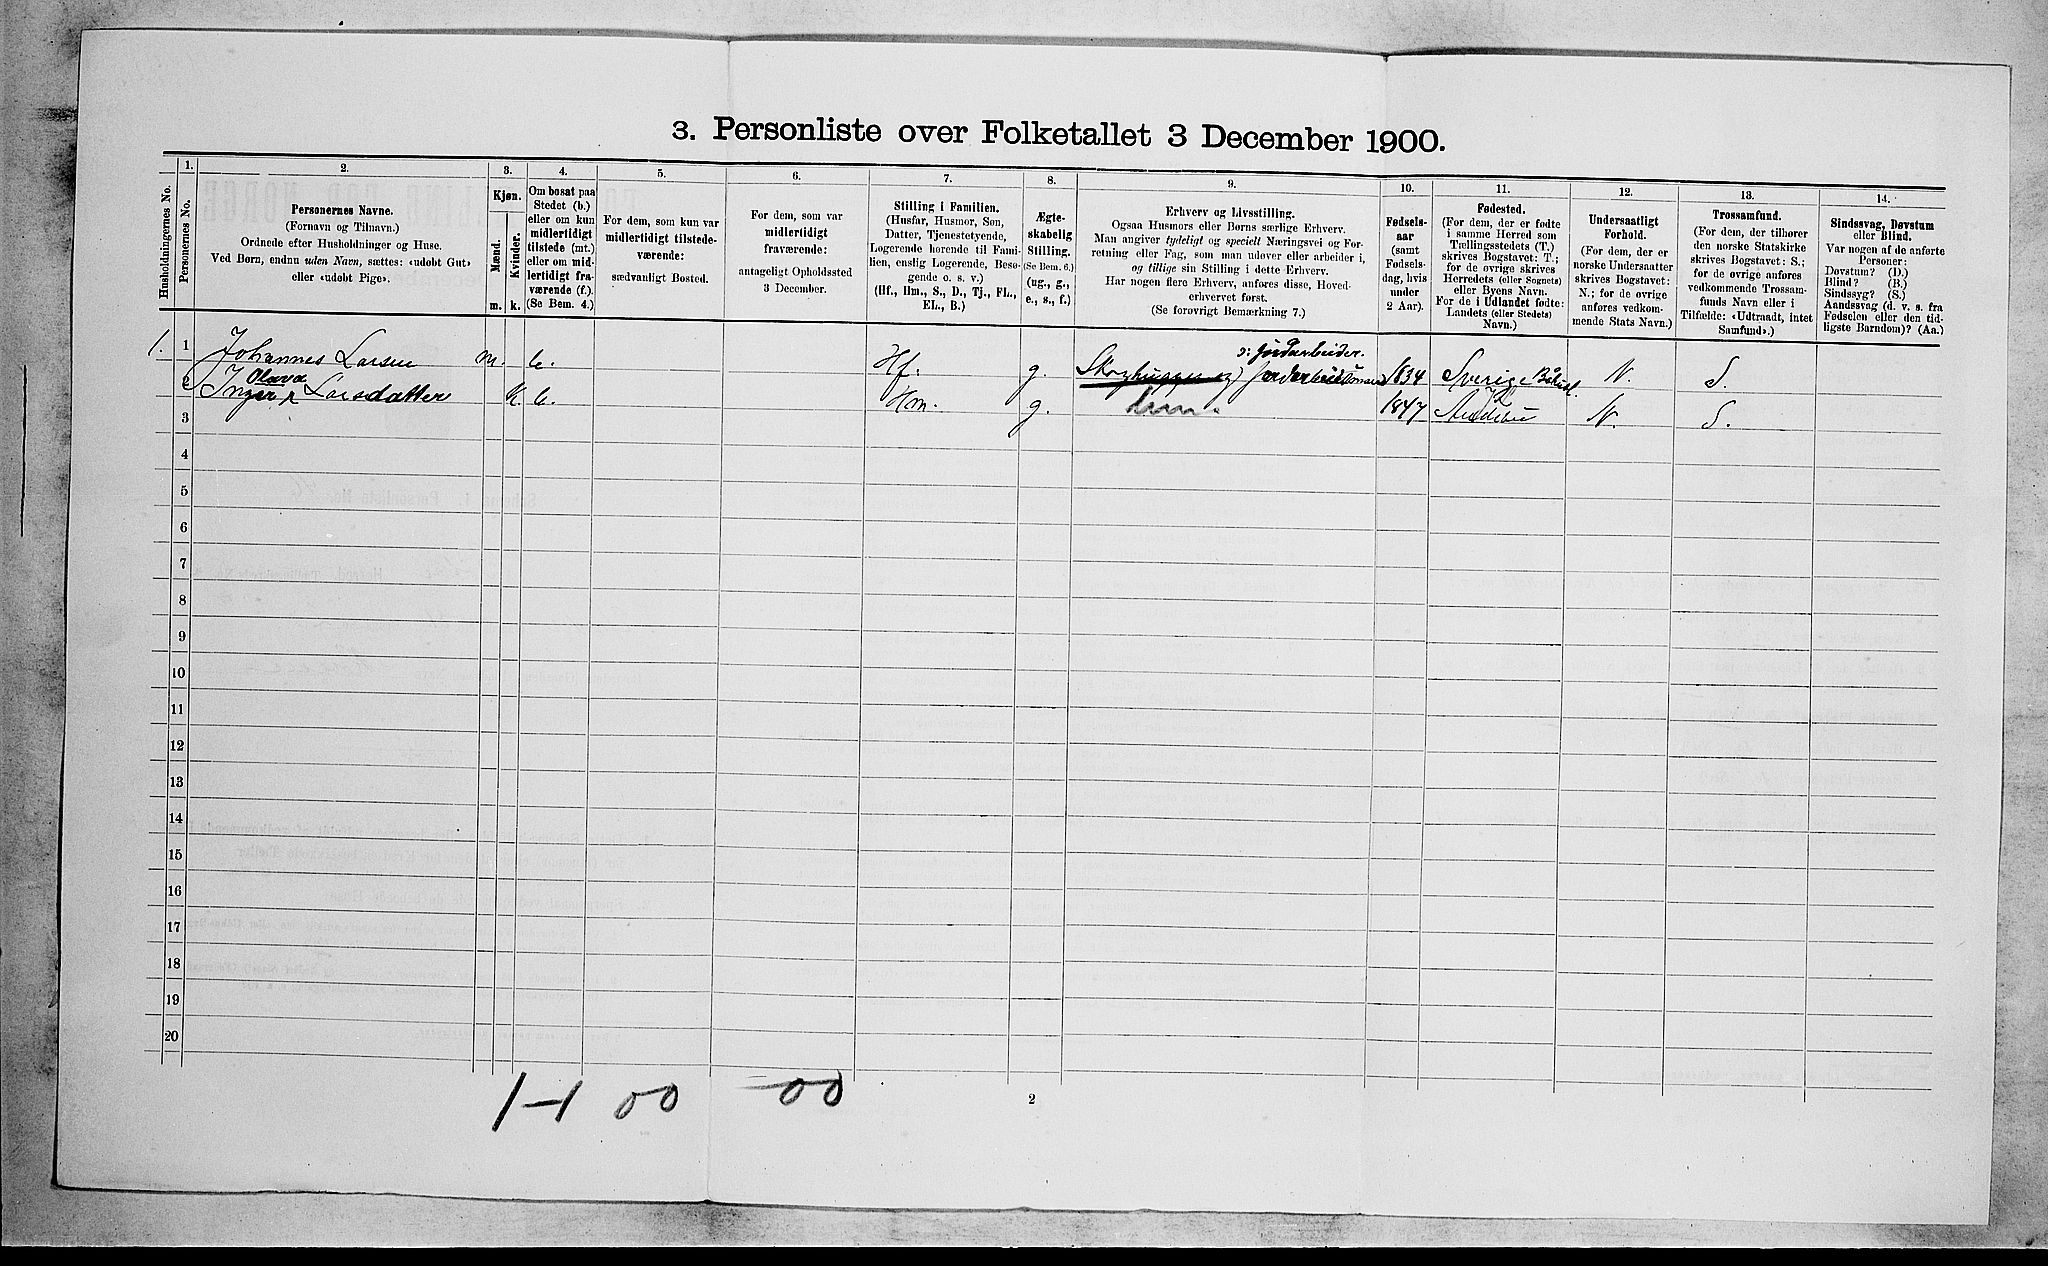 3. Personliste over Folketallet 3 December 1900.
Husholdningernes No.
1.
Personernes No.
2.
Personernes Navne.
(Fornavn og Tilnavn.)
Ordnede efter Husholdninger og Huse.
Ved Børn, endnu uden Navn, sættes: «udøbt Gut»
eller «udøbt Pige».
3.
Kjøn.
Mænd.
Kvinder.
m. k.
4.
Om bosat paa
Stedet (b.)
eller om kun
midlertidigt
tilstede (mt.)
eller om mid-
lertidigt fra-
værende (f.).
(Se Bem. 4.)
5.
For dem, som kun var
midlertidigt tilstede-
værende:
sædvanligt Bosted.
6.
For dem, som var
midlertidigt
fraværende:
antageligt Opholdssted
3 December.
7.
Stilling i Familien.
(Husfar, Husmor, Søn,
Datter, Tjenestetyende,
Logerende hørende til Fami-
lien, enslig Logerende, Besø-
gende o. s. v.)
(Hf., Hm., S., D., Tj., FL.,
EL., B.)
8.
Ægte-
skabelig
Stilling.
(Se Bem. 6.)
(ug., g.,
e., s., f.)
9.
Erhverv og Livsstilling.
Ogsaa Husmors eller Børns særlige Erhverv.
Man angiver tydeligt og specielt Næringsvei og For-
retning eller Fag, som man udøver eller arbeider i,
og tillige sin Stilling i dette Erhverv.
Har nogen flere Erhverv, anføres disse, Hoved-
erhvervet først.
(Se forøvrigt Bemærkning 7.)
10.
Fødsels-
aar
(samt
Fødsels-
dag, hvis
under
2 Aar).
11.
Fødested.
(For dem, der er fødte
i samme Herred som
Tællingsstedets (T.)
skrives Bogstavet: T.;
for de øvrige skrives
Herredets (eller Sognets)
eller Byens Navn.
For de i Udlandet fødte:
Landets (eller Stedets)
Navn.)
12.
Undersaatligt
Forhold.
(For dem, der er
norske Undersaatter
skrives Bogstavet:
N.; for de øvrige
anføres vedkom-
mende Stats Navn.)
13.
Trossamfund.
(For dem, der tilhører
den norske Statskirke
skrives Bogstavet: S.;
for de øvrige anføres
vedkommende Trossam-
funds Navn eller i
Tilfælde: «Udtraadt, intet
Samfund».)
14.
Sindssvag, Døvstum
eller Blind.
Var nogen af de anførte
Personer:
Døvstum? (D.)
Blind? (B.)
Sindssyg? (S.)
Aandssvag (d. v. s. fra
Fødselen eller den tid-
ligste Barndom)? (Aa.)
1. 1 Johannes Larsen m. b. Hf. g. Skoghugger og Jordarbeider ɔ: Jordarbeider. 1834 Sverige N. S.
2 Inger Olava Larsdatter k. b. Hm. g. 1847 Andebu N. S.
3
4
5
6
7
8
9
10
11
12
13
14
15
16
17
18
19
20
1-1 00 00
2